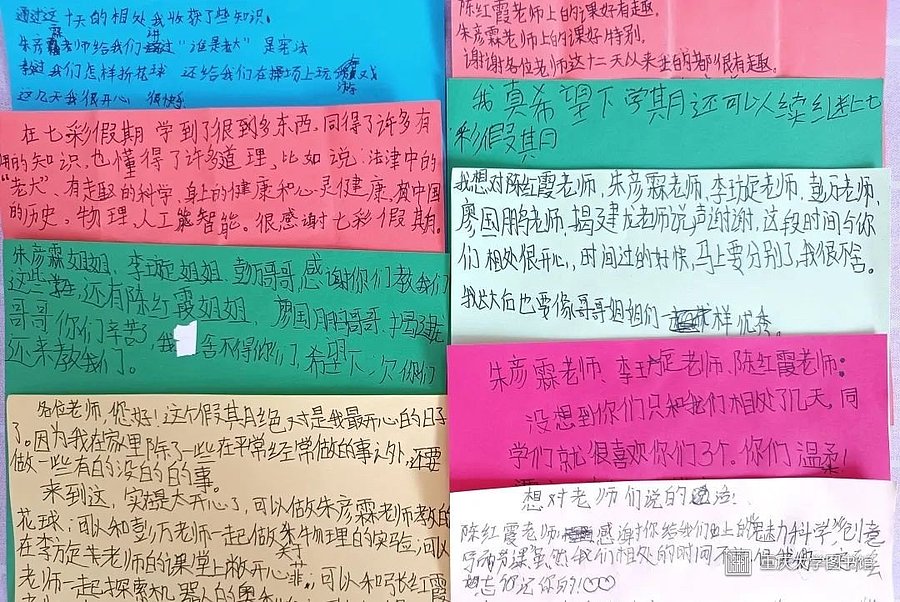 通过这十天的相处我收获了些知识。
朱彦霖老师给我们讲过“谁是老大”是宪法
教过我们怎样折花球 还给我们在操场上玩游戏
这几天我很开心 很快乐
在七彩假期 学到了很到多东西,同得了许多有
用的知识,也懂得了许多道理,比如说:法津中的
“老大”、有走趣的科学、身上的健康和心灵健康,中国
的历史。物理,人工能智能。很感谢七彩假期。
朱彦霖姐姐,李琁姐姐,彭万哥哥,感谢你们教我们
这些,还有陈红霞姐姐,廖国朋鹏哥哥,
哥哥你们辛苦了,我 舍不得你们,希望下次你们
还来教我们。
各位老师,您好!这个假其月绝对是我最开心的日子
了。因为我在家里除了一些在平常经常做的事以外,还要
做一些有的没的的的事。
来到这,实在是太开心了,可以做朱彦霖老师教的
花球;可以和彭万老师一起做物理的实验;可以
在李方定老师的课堂上敞开心菲。可以和陈红霞
老师一起探索机器人的奥秘
陈红霞老师上的课好有趣。
朱彦霖老师上的课好特别。
谢谢各位老师这十二天以来上的都很有趣。
我真希望下学期还可以续继上七
彩假其月
我想对陈红霞老师,朱彦霖老师,李琁老师,彭万老师,
廖国鹏老师,揭建龙老师说声谢谢,这段时间与你
们相处很开心,时间过的好快,马上要分别了,我很不舍。
我长大后也要像哥哥姐姐们一样优秀。
朱彦霖老师、李琁老师、陈红霞老师:
没想到你们只和我们相处了几天,同
学们就很喜欢你们3个。你们温柔!
想对老师们说的话:
陈红霞老师感谢你给我们上的“魅力科学”,创意
写的课虽然我们相处的时间不
想忘记你的!
重庆大学图书馆